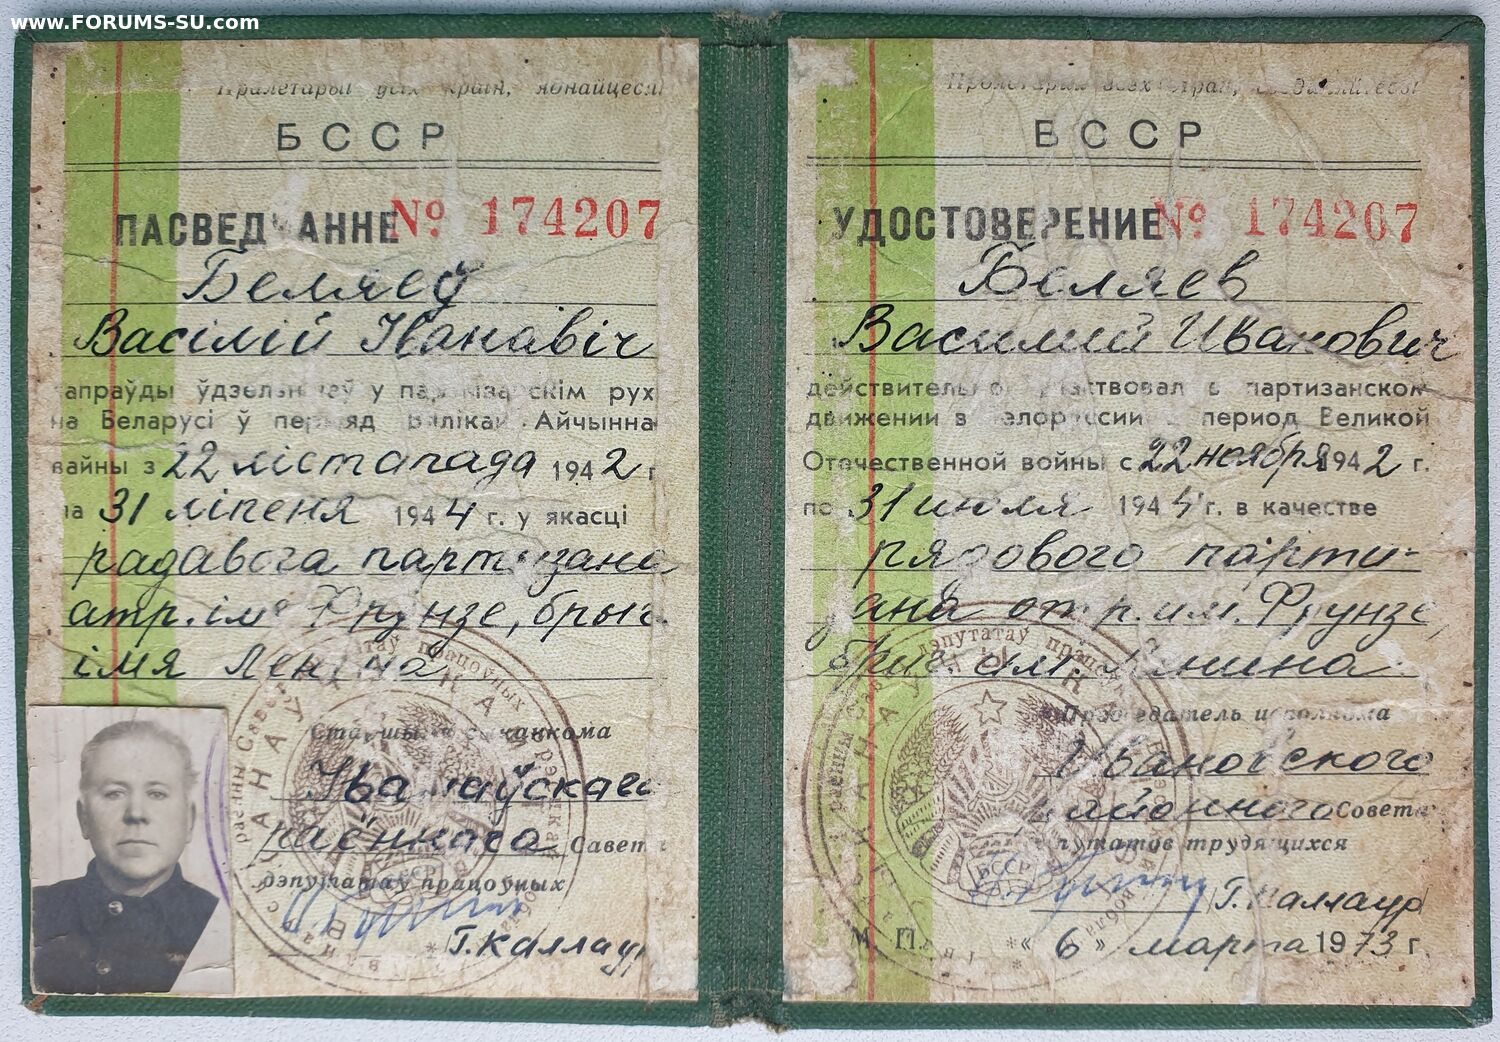 www.FORUMS-SU.com
Пралетарыі ўсіх краін, яднайцеся!
БССР
ПАСВЕДЧАННЕ № 174207
Беляеў
Васілій Іванавіч
сапраўды ўдзельнічаў у партызанскім рух
на Беларусі ў перыяд Вялікай Айчынна
вайны з 22 лістапада 1942 г
па 31 ліпеня 1944 г. у якасці
радавога партызана
атр. імя Фрунзе, брыг.
імя Леніна
Старшыня выканкома
Іванаўскага
раённага Савета
дэпутатаў працоўных
Г. Каллаур
Пролетарии всех стран, соединяйтесь!
БССР
УДОСТОВЕРЕНИЕ № 174207
Беляев
Василий Иванович
действительно участвовал в партизанском
движении в Белоруссии в период Великой
Отечественной войны с 22 ноября 1942 г.
по 31 июля 1944 г. в качестве
рядового парти-
зана отр. им. Фрунзе,
бриг. им. Ленина
Председатель исполкома
Ивановского
районного Совета
депутатов трудящихся
Г. Каллаур
М. П. «6» марта 1973 г.